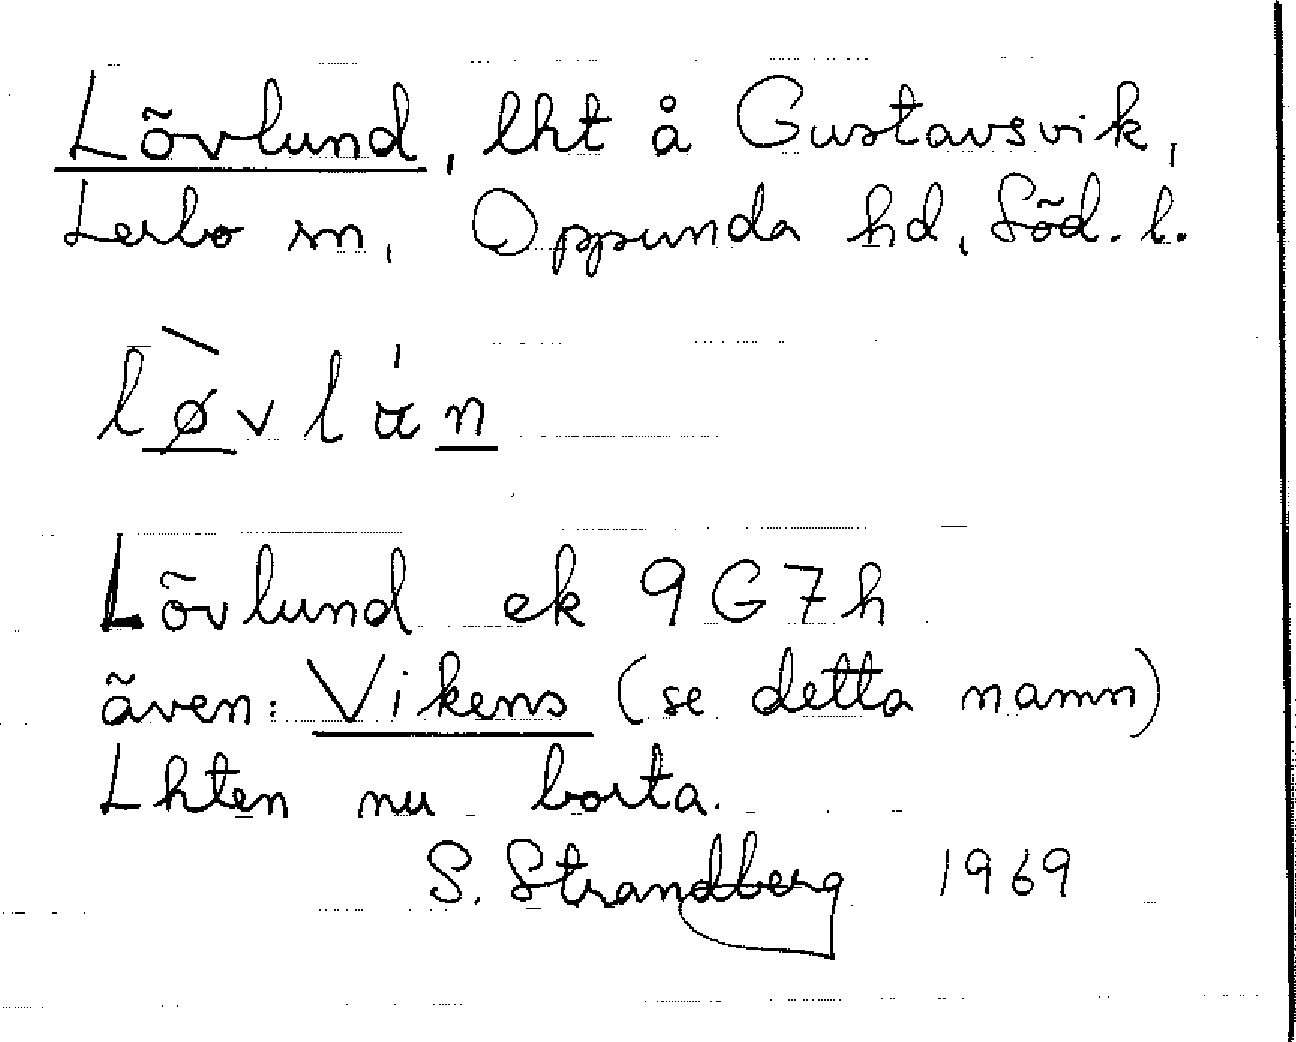 Lövlund, lht å Gustavsvik,
Lerbo sn, Oppunda hd, Söd. l.
lø̀vlún
Lövlund ek 9G7h
även: Vikens (se detta namn)
Lhten nu borta.
S. Strandberg 1969